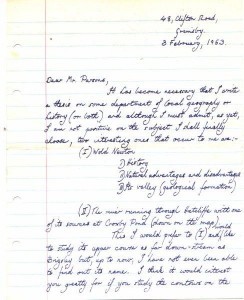 48, Clifton Road,
Grimsby.
3 February, 1963.
Dear Mr. Parsons,
It has become necessary that I write
a thesis on some department of local geography or
history (or both) and although I must admit, as yet,
I am not positive on the subject I shall finally
choose, two interesting ones that occur to me are:-
(I) Wold Newton
1) History
2) Natural advantages and disadvantages
3) Its valley (geological formation)
(II) The river running through Gatcliffe with one
of its sources at Croxby Pond (down on the map)
This I would prefer to (I) and I'd like
to study its upper course as far down-stream as
Brigsley but, up to now, I have not even been able
to find out its name. I think it would interest
you greatly for if you study the contours on the